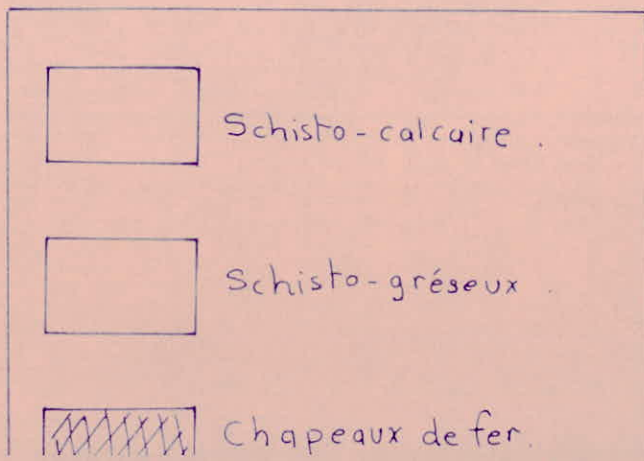 Schisto-calcaire.
Schisto-gréseux.
Chapeaux de fer.